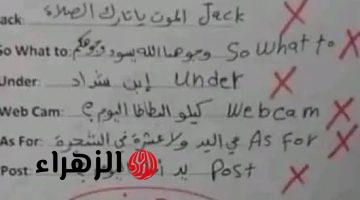 ack: الموت ياتارك الصلاة Jack
So What to: وجوهنا الله يسود وجوهكم So What to
Under: إبن شداد Under
Web Cam: كيلو البطاطا اليوم؟ Webcam
As For: في اليد ولا عشرة في الشجرة As For
Post: يد Post
الزهراء